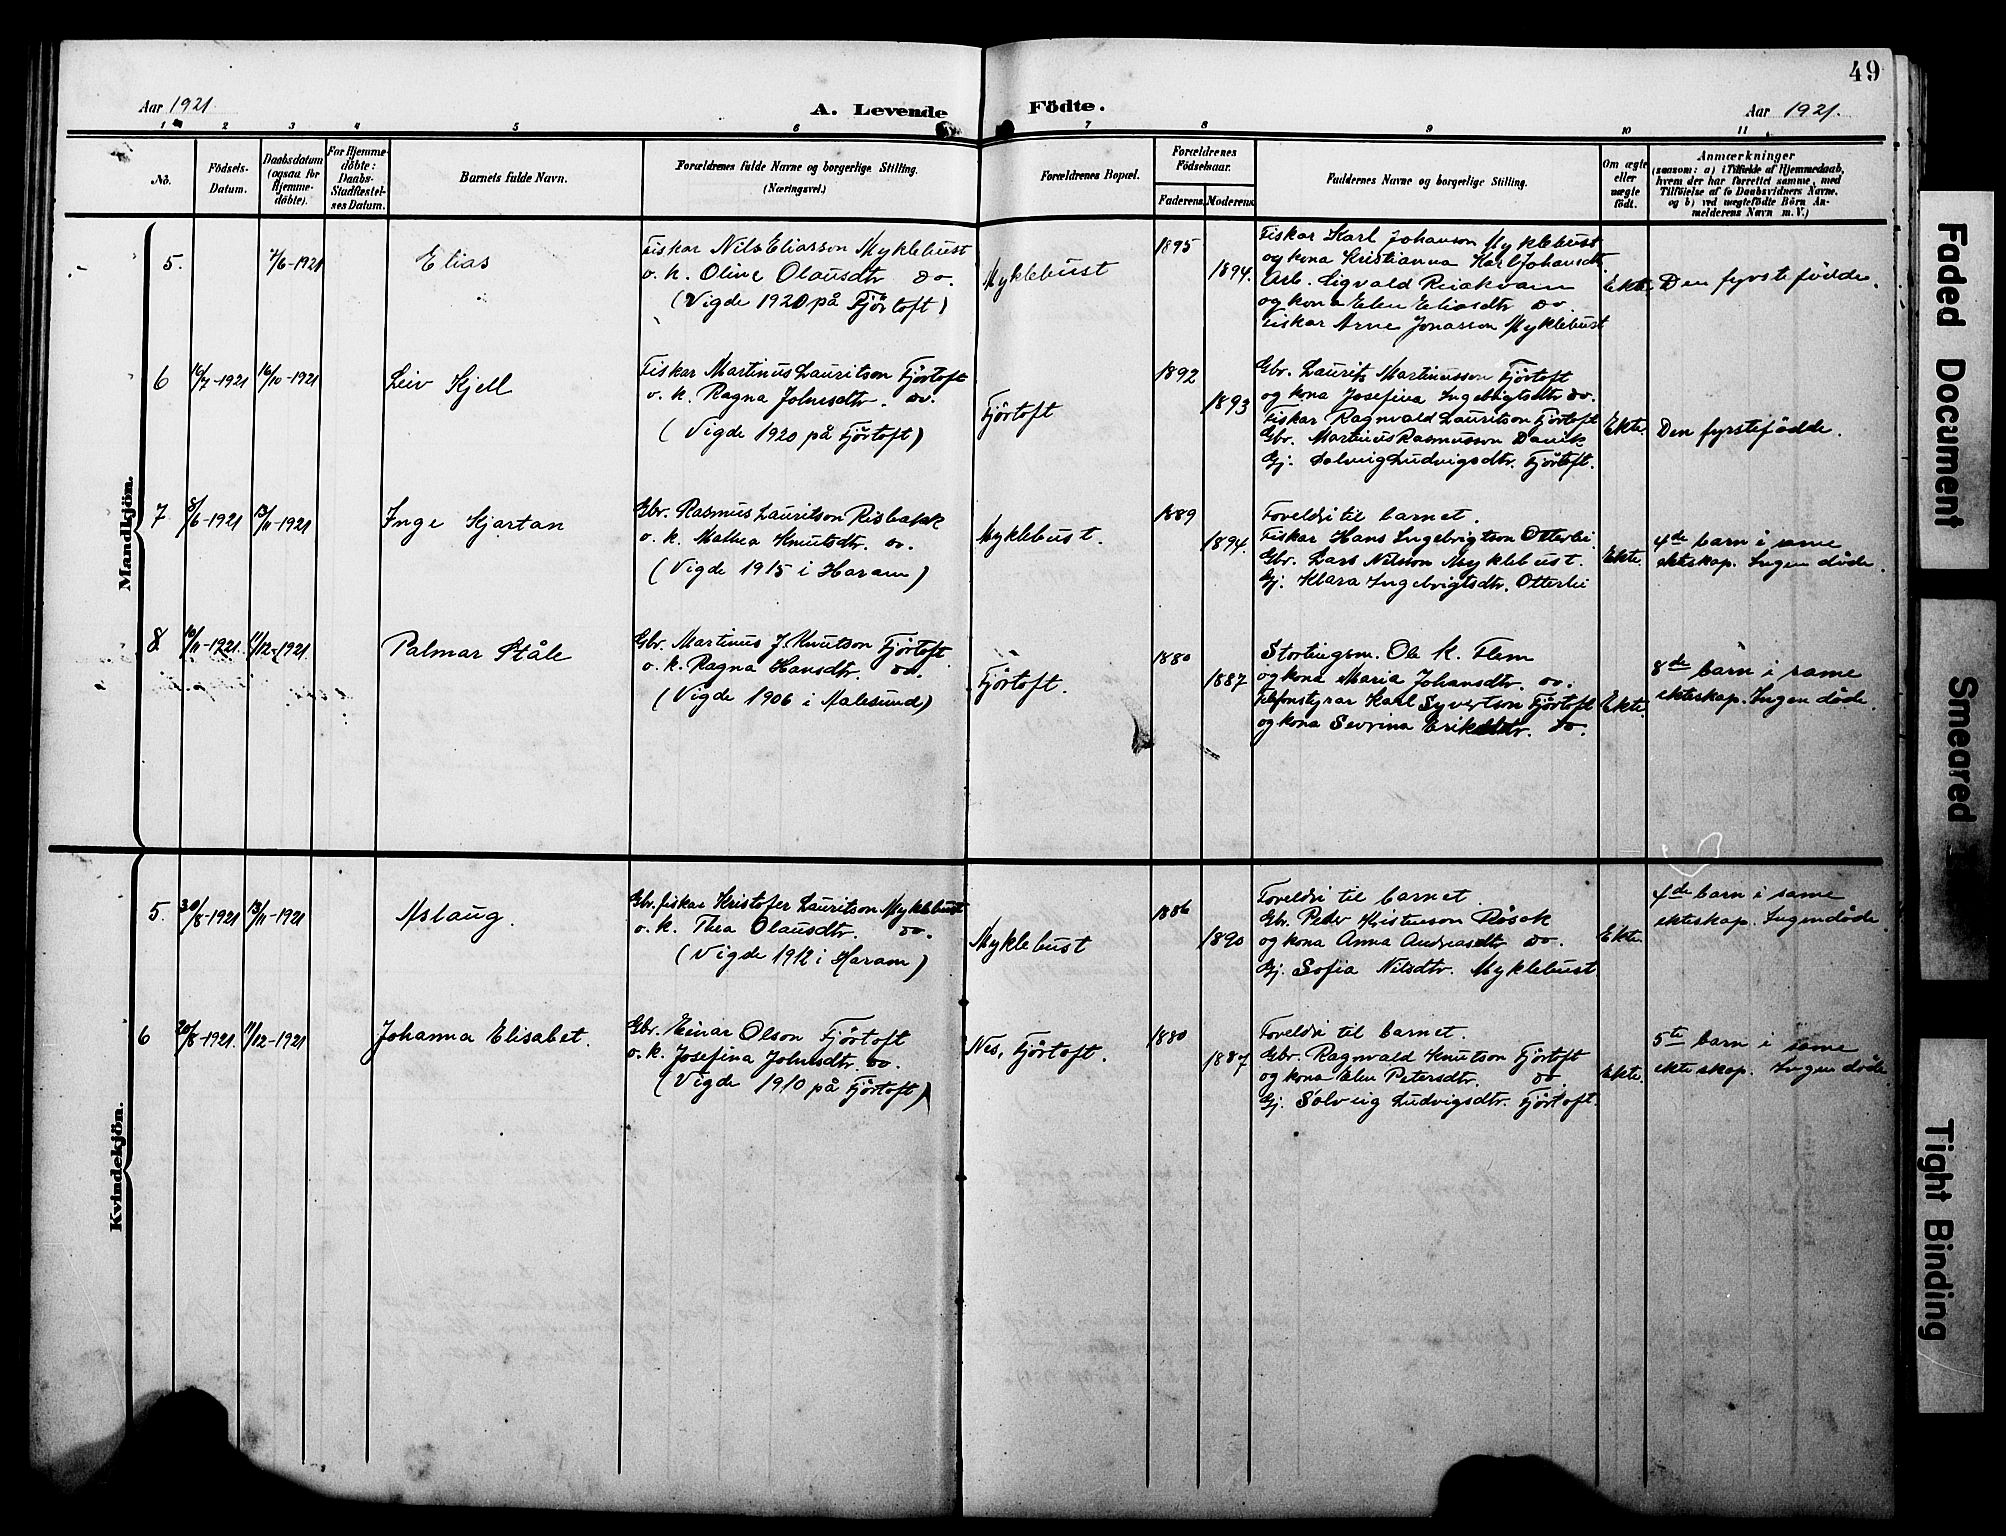 49
Aar 1921
A. Levende Födte.
Aar 1921.
1 2 3 4 5 6 7 8 9 10 11
No.
Födsels-Datum.
Daabsdatum (ogsaa for Hjemmedöbte).
For Hjemmedöbte: Daabs-Stadfæstelses Datum.
Barnets fulde Navn.
Forældrenes fulde Navne og borgerlige Stilling. (Næringsvei.)
Forældrenes Bopæl.
Forældrenes Födselsaar.
Faderens
Moderens
Faddernes Navne og borgerlige Stilling.
Om ægte eller uægte födt.
Anmærkninger
(saasom: a) i Tilfælde af Hjemmedaab,
hvem der har forrettet samme, med
Tilföielse af to Daabsvidners Navne.
og b) ved uægtefödte Börn An-
melderens Navn m. V.)
Mandkjön.
5.
7/6-1921
Elias
Fiskar Nils Eliasson Myklebust
o. k. Oline Olausdtr do.
(Vigde 1920 på Fjörtoft)
Myklebust
1895
1894.
Fiskar Karl Johanson Myklebust
og kona Kristianna Karl Johansdtr.
Arb. Sigvald Reiakvam
og kona Elen Eliasdtr do
Fiskar Arne Jonasson Myklebust
Ekte.
Den fyrste födde.
6
16/7-1921
16/10-1921
Leiv Kjell
Fiskar Martinus Lauritson Fjörtoft
o. k. Ragna Johnsdtr. do.
(Vigde 1920 på Fjörtoft)
Fjörtoft
1892
1893
Gbr. Laurits Martinusson Fjörtoft
og kona Josefina Ingebrigtsdtr do.
Fiskar Ragnvald Lauritson Fjörtoft
Gbr. Martinus Rasmusson
Gj. Solveig Ludvigsdtr. Fjörtoft.
Ekte.
Den fyrstefödde.
7
8/6-1921
13/11-1921
Inge Kjartan
Gbr. Rasmus Lauritson Risbakk
o. k. Mathea Knutsdtr. do.
(Vigde 1915 i Haram)
Myklebust.
1889
1894.
Foreldri til barnet.
Fiskar Hans Ingebrigtson Otterlei
Gbr. Lars Nilsson Myklebust.
Gj. Klara Ingebrigtsdtr. Otterlei
Ekte.
4de barn i same
ekteskap. Ingen döde.
8
10/11-1921.
11/12-1921.
Palmar Ståle
Gbr. Martinus J. Knutson Fjörtoft
o. k. Ragna Hansdtr. do.
(Vigde 1906 i Aalesund)
Fjörtoft.
1880
1887
Stortingsm. Ole K. Flem
og kona Maria Johansdtr. do.
Telefonstyrar Karl Syvertson Fjörtoft
og kona Sevrina Eriksdtr. do.
Ekte.
8de barn i same
ekteskap. Ingen döde.
Kvindekjön.
5.
30/8-1921
13/11-1921
Aslaug.
Gbr. fiskar Kristofer Lauritson Myklebust
o. k. Thea Olausdtr. do.
(Vigde 1912 i Haram)
Myklebust
1886
1890
Foreldri til barnet.
Gbr. Peder Kristenson Rösok
og kona Anna Andreasdtr do.
Gj. Sofia Nilsdtr. Myklebust.
Ekte.
4de barn i same
ekteskap. Ingen döde
6
20/8-1921.
11/12-1921
Johanna Elisabet.
Gbr. Einar Olson Fjörtoft
o. k. Josefina Johnsdtr. do.
(Vigde 1910 på Fjörtoft)
Nes, Fjörtoft.
1880
1887
Foreldri til barnet.
Gbr. Ragnvald Knutson Fjörtoft
og kona Elen Petersdtr. do
Gj. Solveig Ludvigsdtr. Fjörtoft.
Ekte.
5te barn i same
ekteskap. Ingen döde.
Faded Document
Smeared
Tight Binding